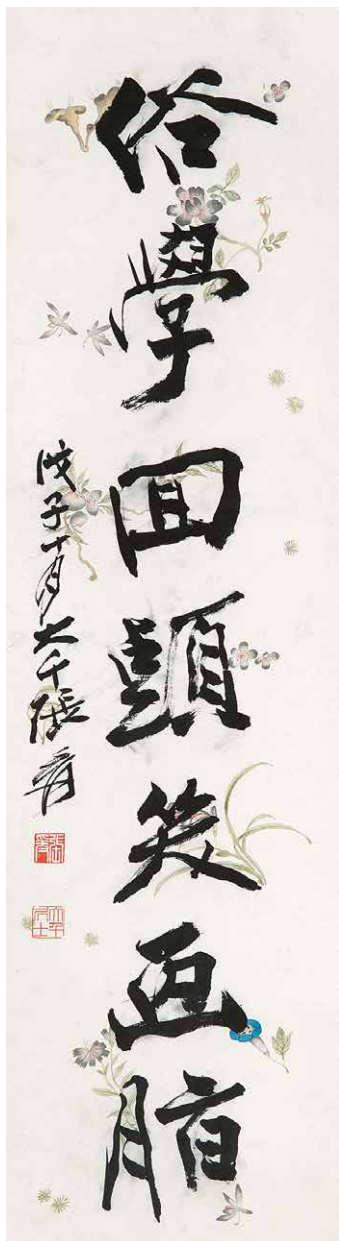 俗學回頭笑画脂
戊子十月大千張爰
張爰
大千居士